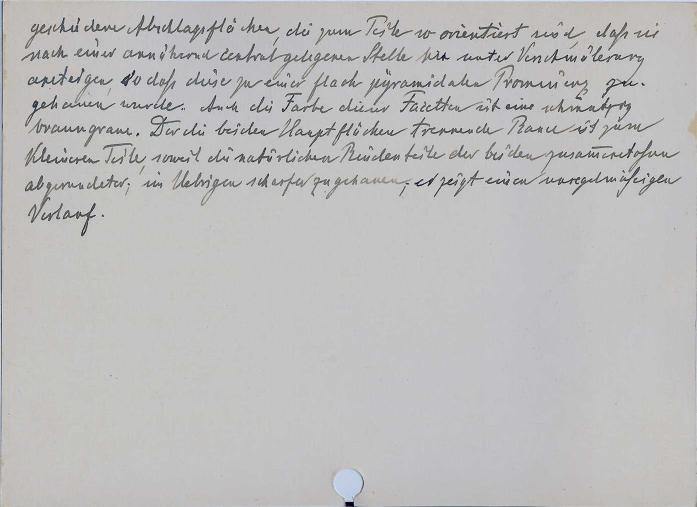 geschiedene Abschlagsflächen, die zum Teile so orientiert sind, daß sie
nach einer annähernd central gelegenen Stelle hin unter Verschmälerung
ansteigen, so daß diese zu einer flach pyramidalen Prominenz zu-
gehauen wurde. Auch die Farbe dieser Facetten ist eine
braungraue. Der die beiden Hauptflächen trennende Rand ist zum
kleineren Teile, soweit die natürlichen Rindenteile der beiden zusammenstoßen
abgerundeter, im Uebrigen scharfer zugehauen; er zeigt einen unregelmäßigen
Verlauf.